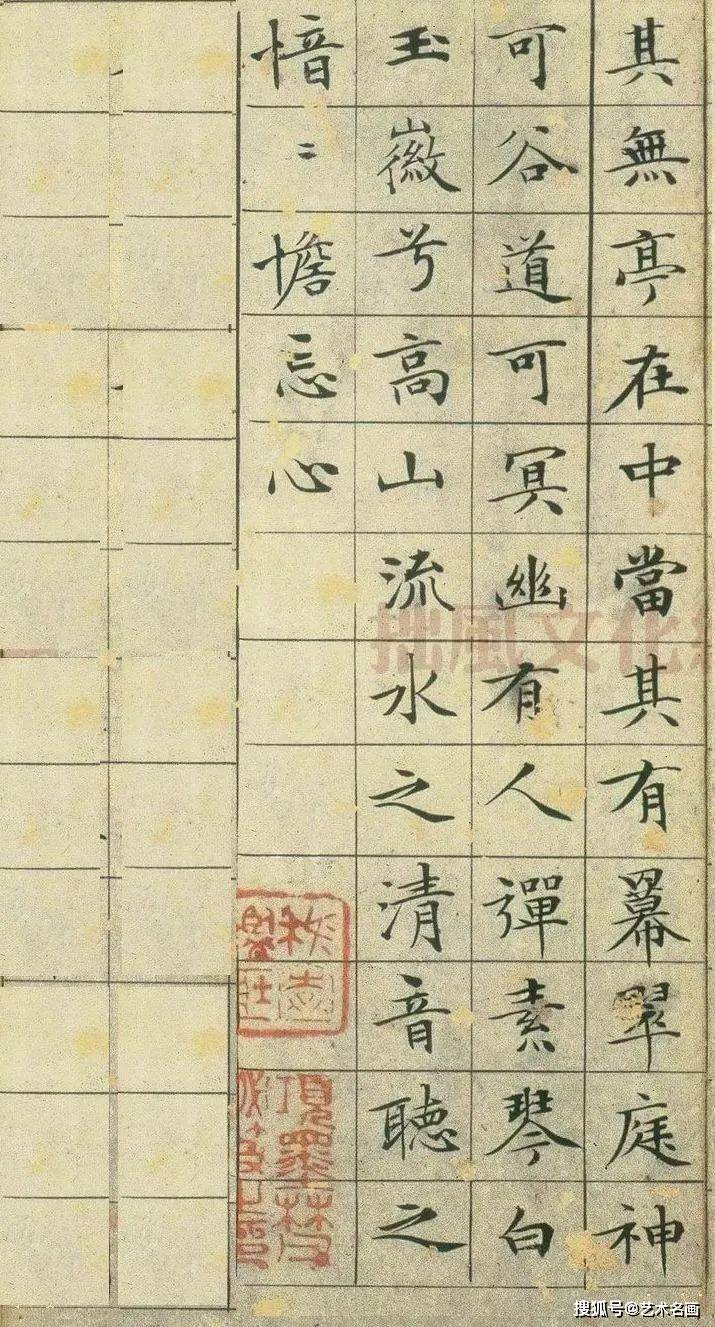 其無亭在中當其有羃翠庭神
可谷道可冥幽有人彈素琴白
玉徽兮高山流水之清音聽之
愔〻憺忘心
拙風文化
搜狐号@艺术名画